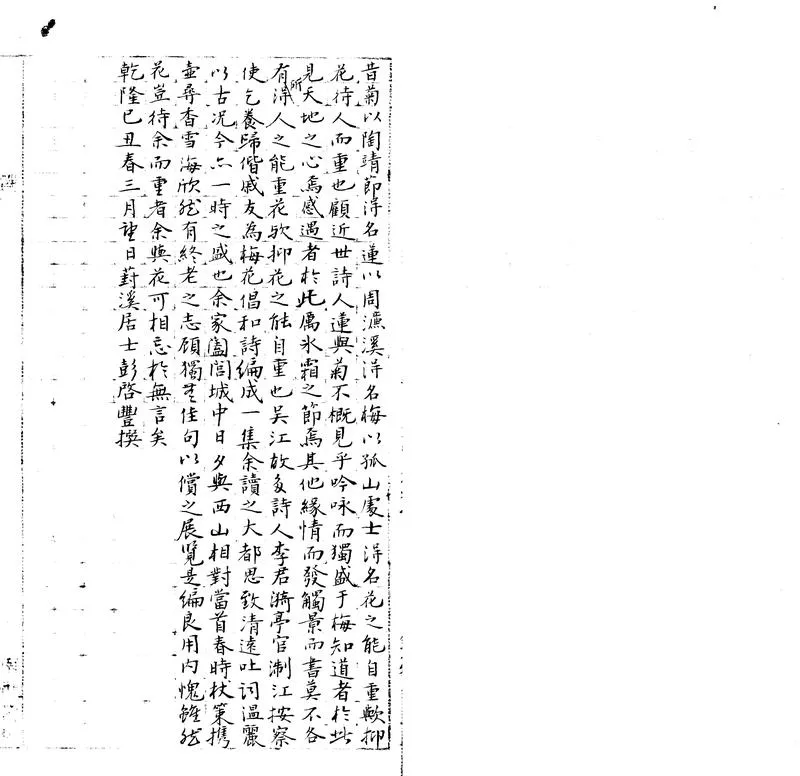 昔菊以陶靖節得名蓮以周濂溪得名梅以孤山處士得名花之能自重歟抑
花待人而重也顧近世詩人蓮與菊不概見乎吟咏而獨盛于梅知道者於此
見天地之心焉感遇者於此厲氷霜之節焉其他緣情而發觸景而書莫不各
有所得人之能重花歟抑花之能自重也吴江故多詩人李君漪亭官淛江按察
使乞養歸偕戚友為梅花倡和詩編成一集余讀之大都思致清遠吐词溫麗
以古况今亦一時之盛也余家闔閭城中日夕與西山相對當首春時杖策携
壷尋香雪海欣然有終老之志顧獨無佳句以償之展覽是編良用内愧雖然
花豈待余而重者余與花可相忘於無言矣
乾隆已丑春三月望日葑溪居士彭啓豐撰